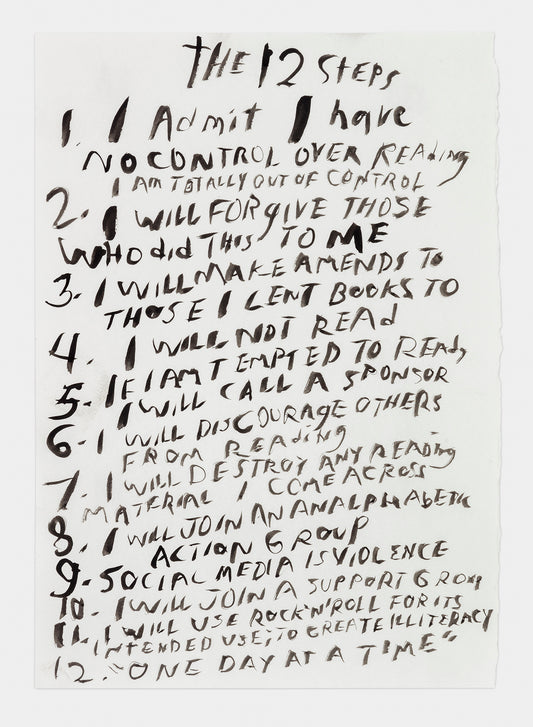 THE 12 STEPS
1. I Admit I have
NO CONTROL OVER REAding
I AM TOTALLY OUT OF CONTROL
2. I WILL FORgIVE THOSE
WHO did THIS TO ME
3. I WILL MAKE AMENDS TO
THOSE I LENT BOOKS TO
4. I WILL NOT READ
5. IF I AM TEMPTED TO READ,
I WILL CALL A SPONSOR
6. I WILL DISCOURAGE OTHERS
FROM READING
7. I WILL DESTROY ANY READING
MATERIAL I COME ACROSS
8. I WILL JOIN AN ANALPHABETIC
ACTION GROUP
9. SOCIAL MEDIA IS VIOLENCE
10. I WILL JOIN A SUPPORT GROUP
11. I WILL USE ROCK'N'ROLL FOR ITS
INTENDED USE; TO CREATE ILLITERACY
12. "ONE DAY AT A TIME"